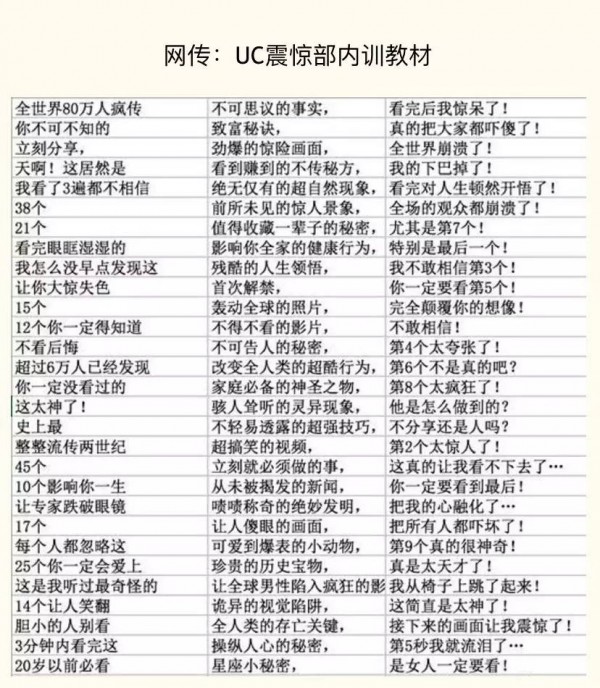 网传：UC震惊部内训教材
全世界80万人疯传 不可思议的事实， 看完后我惊呆了！
你不可不知的 致富秘诀， 真的把大家都吓傻了！
立刻分享， 劲爆的惊险画面， 全世界崩溃了！
天啊！这居然是 看到赚到的不传秘方， 我的下巴掉了！
我看了3遍都不相信 绝无仅有的超自然现象， 看完对人生顿然开悟了！
38个 前所未见的惊人景象， 全场的观众都崩溃了！
21个 值得收藏一辈子的秘密， 尤其是第7个！
看完眼眶湿湿的 影响你全家的健康行为， 特别是最后一个！
我怎么没早点发现这 残酷的人生领悟， 我不敢相信第3个！
让你大惊失色 首次解禁， 你一定要看第5个！
15个 轰动全球的照片， 完全颠覆你的想像！
12个你一定得知道 不得不看的影片， 不敢相信！
不看后悔 不可告人的秘密， 第4个太夸张了！
超过6万人已经发现 改变全人类的超酷行为， 第6个不是真的吧？
你一定没看过的 家庭必备的神圣之物， 第8个太疯狂了！
这太神了！ 骇人耸听的灵异现象， 他是怎么做到的？
史上最 不轻易透露的超强技巧， 不分享还是人吗？
整整流传两世纪 超搞笑的视频， 第2个太惊人了！
45个 立刻就必须做的事， 这真的让我看不下去了…
10个影响你一生 从未被揭发的新闻， 你一定要看到最后！
让专家跌破眼镜 啧啧称奇的绝妙发明， 把我的心融化了…
17个 让人傻眼的画面， 把所有人都吓坏了！
每个人都忽略这 可爱到爆表的小动物， 第9个真的很神奇！
25个你一定会爱上 珍贵的历史宝物， 真是太天才了！
这是我听过最奇怪的 让全球男性陷入疯狂的影 我从椅子上跳了起来！
14个让人笑翻 诡异的视觉陷阱， 这简直是太神了！
胆小的人别看 全人类的存亡关键， 接下来的画面让我震惊了！
3分钟内看完这 操纵人心的秘密， 第5秒我就流泪了…
20岁以前必看 星座小秘密， 是女人一定要看！